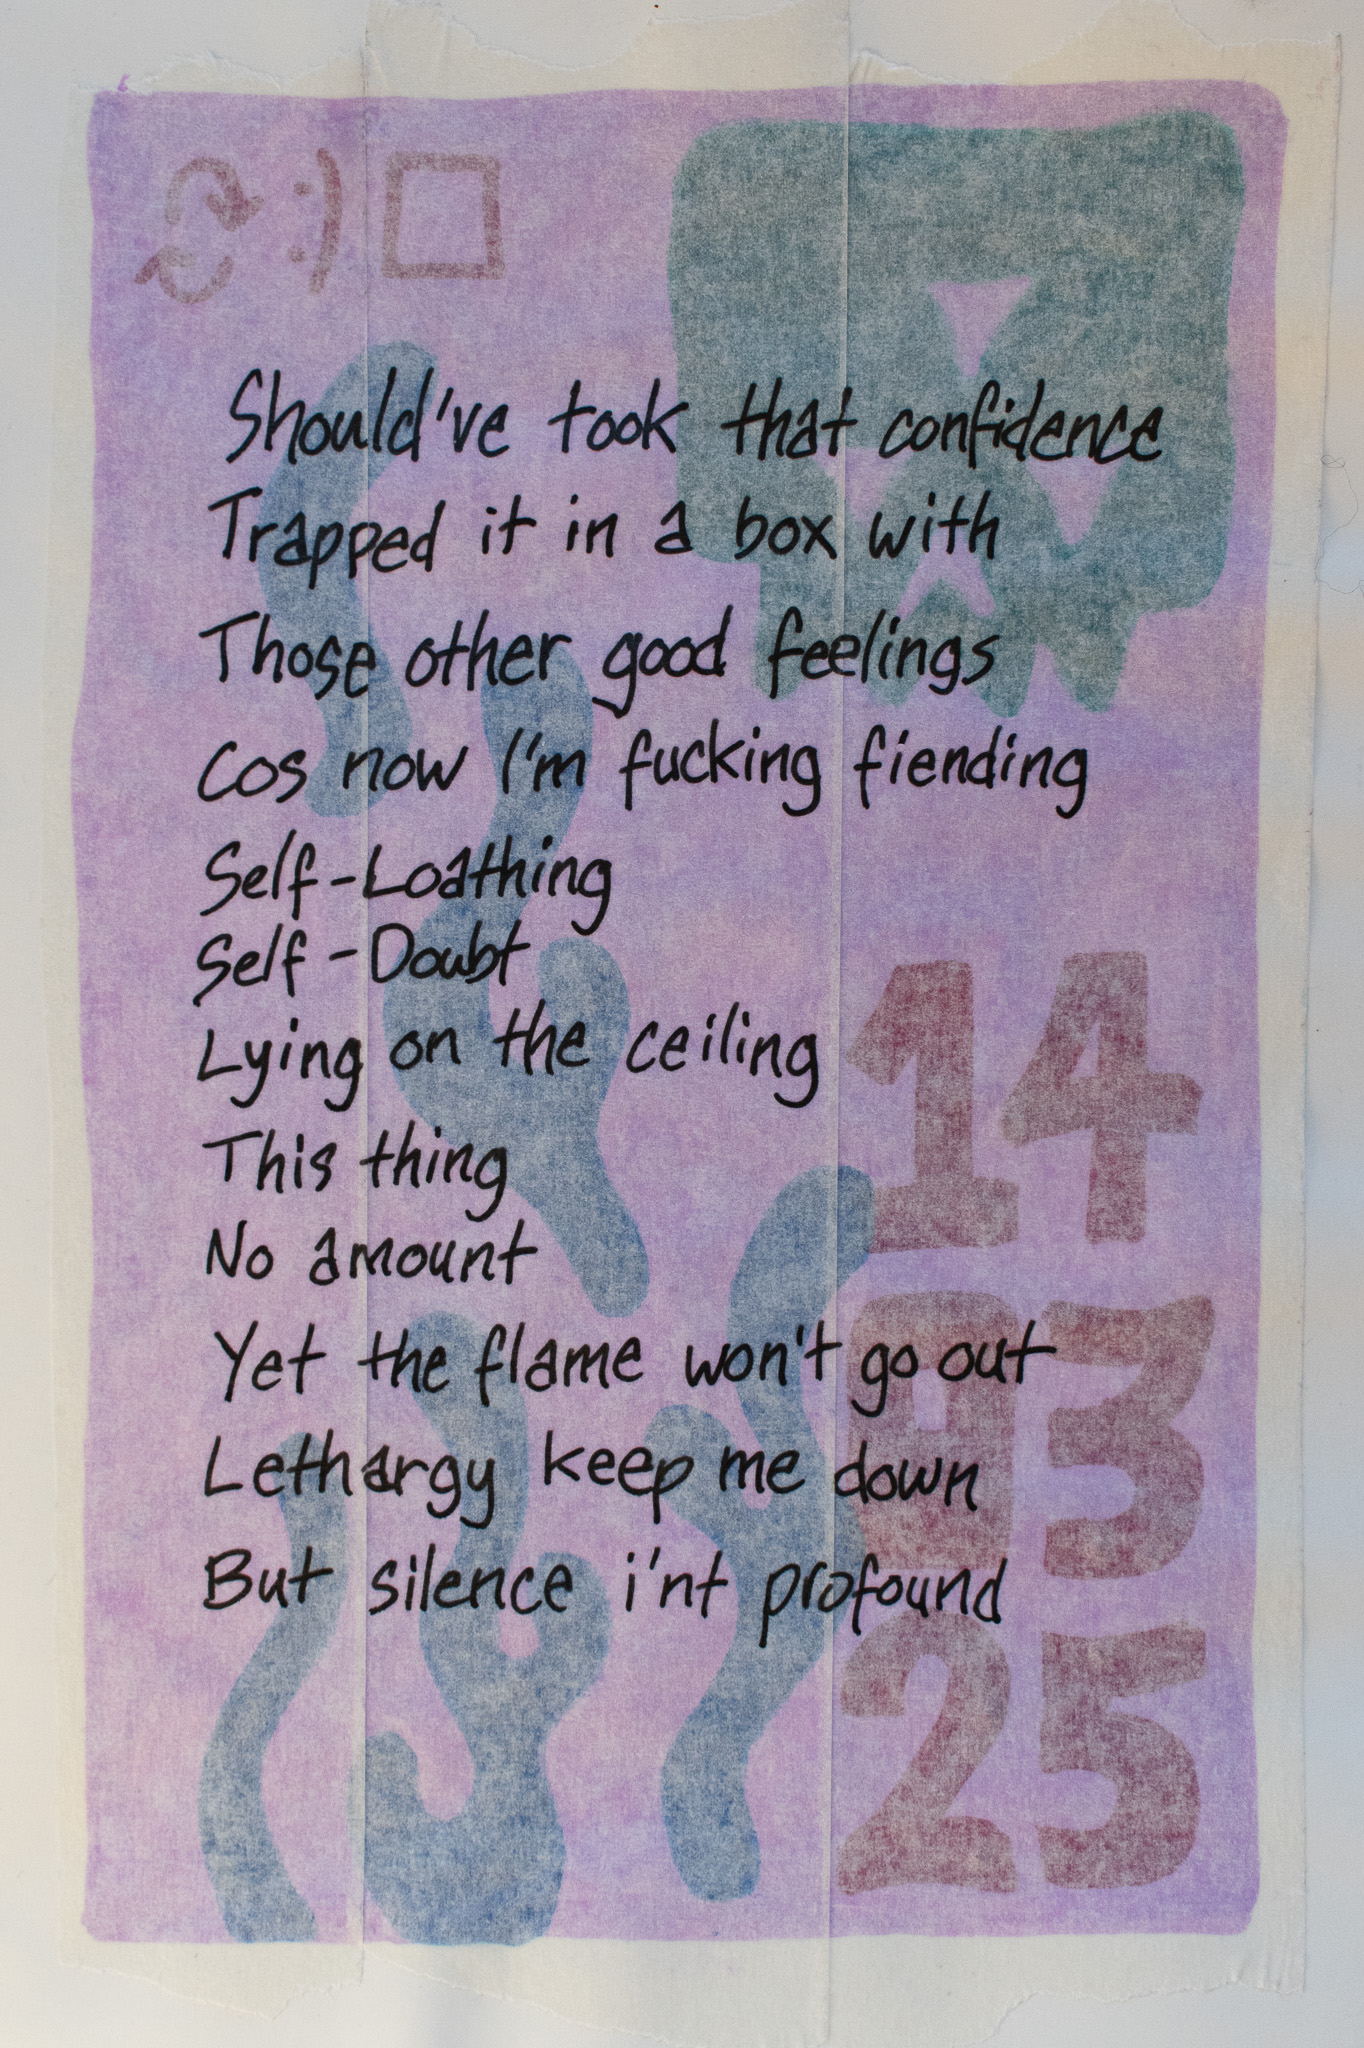 :)
Should've took that confidence
Trapped it in a box with
Those other good feelings
Cos now I'm fucking fiending
Self-Loathing
Self-Doubt
Lying on the ceiling
This thing
No amount
Yet the flame won't go out
Lethargy keep me down
But silence i'nt profound
14
03
25